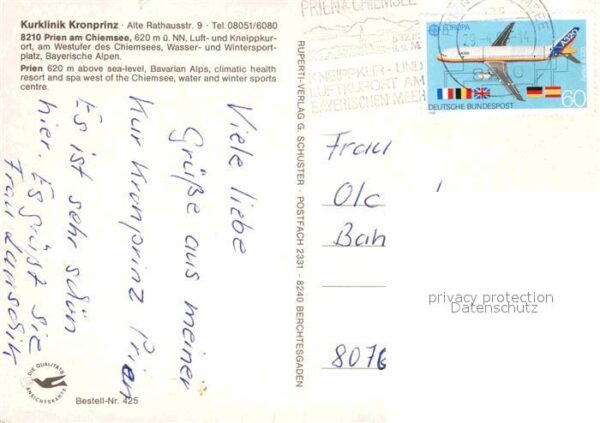 Kurklinik Kronprinz · Alte Rathausstr. 9 · Tel. 08051/6080
8210 Prien am Chiemsee, 620 m ü. NN, Luft- und Kneippkur-
ort, am Westufer des Chiemsees, Wasser- und Wintersport-
platz, Bayerische Alpen.
Prien 620 m above sea-level, Bavarian Alps, climatic health
resort and spa west of the Chiemsee, water and winter sports
centre.
Viele liebe
Grüße aus meiner
Kur Kronprinz Prien
Es ist sehr schön
hier. Es grüßt Sie
Frau
DIE QUALITÄTS
ANSICHTSKARTE
Bestell-Nr. 425
RUPERTI-VERLAG G. SCHUSTER · POSTFACH 2331 · 8240 BERCHTESGADEN
PRIEN A CHIEMSEE
KNEIPPKUR- UND
LUFTKURORT AM
BAYERISCHEN MEER
EUROPA
A320
DEUTSCHE BUNDESPOST
60
Frau
Olc
Bah
8076
privacy protection
Datenschutz